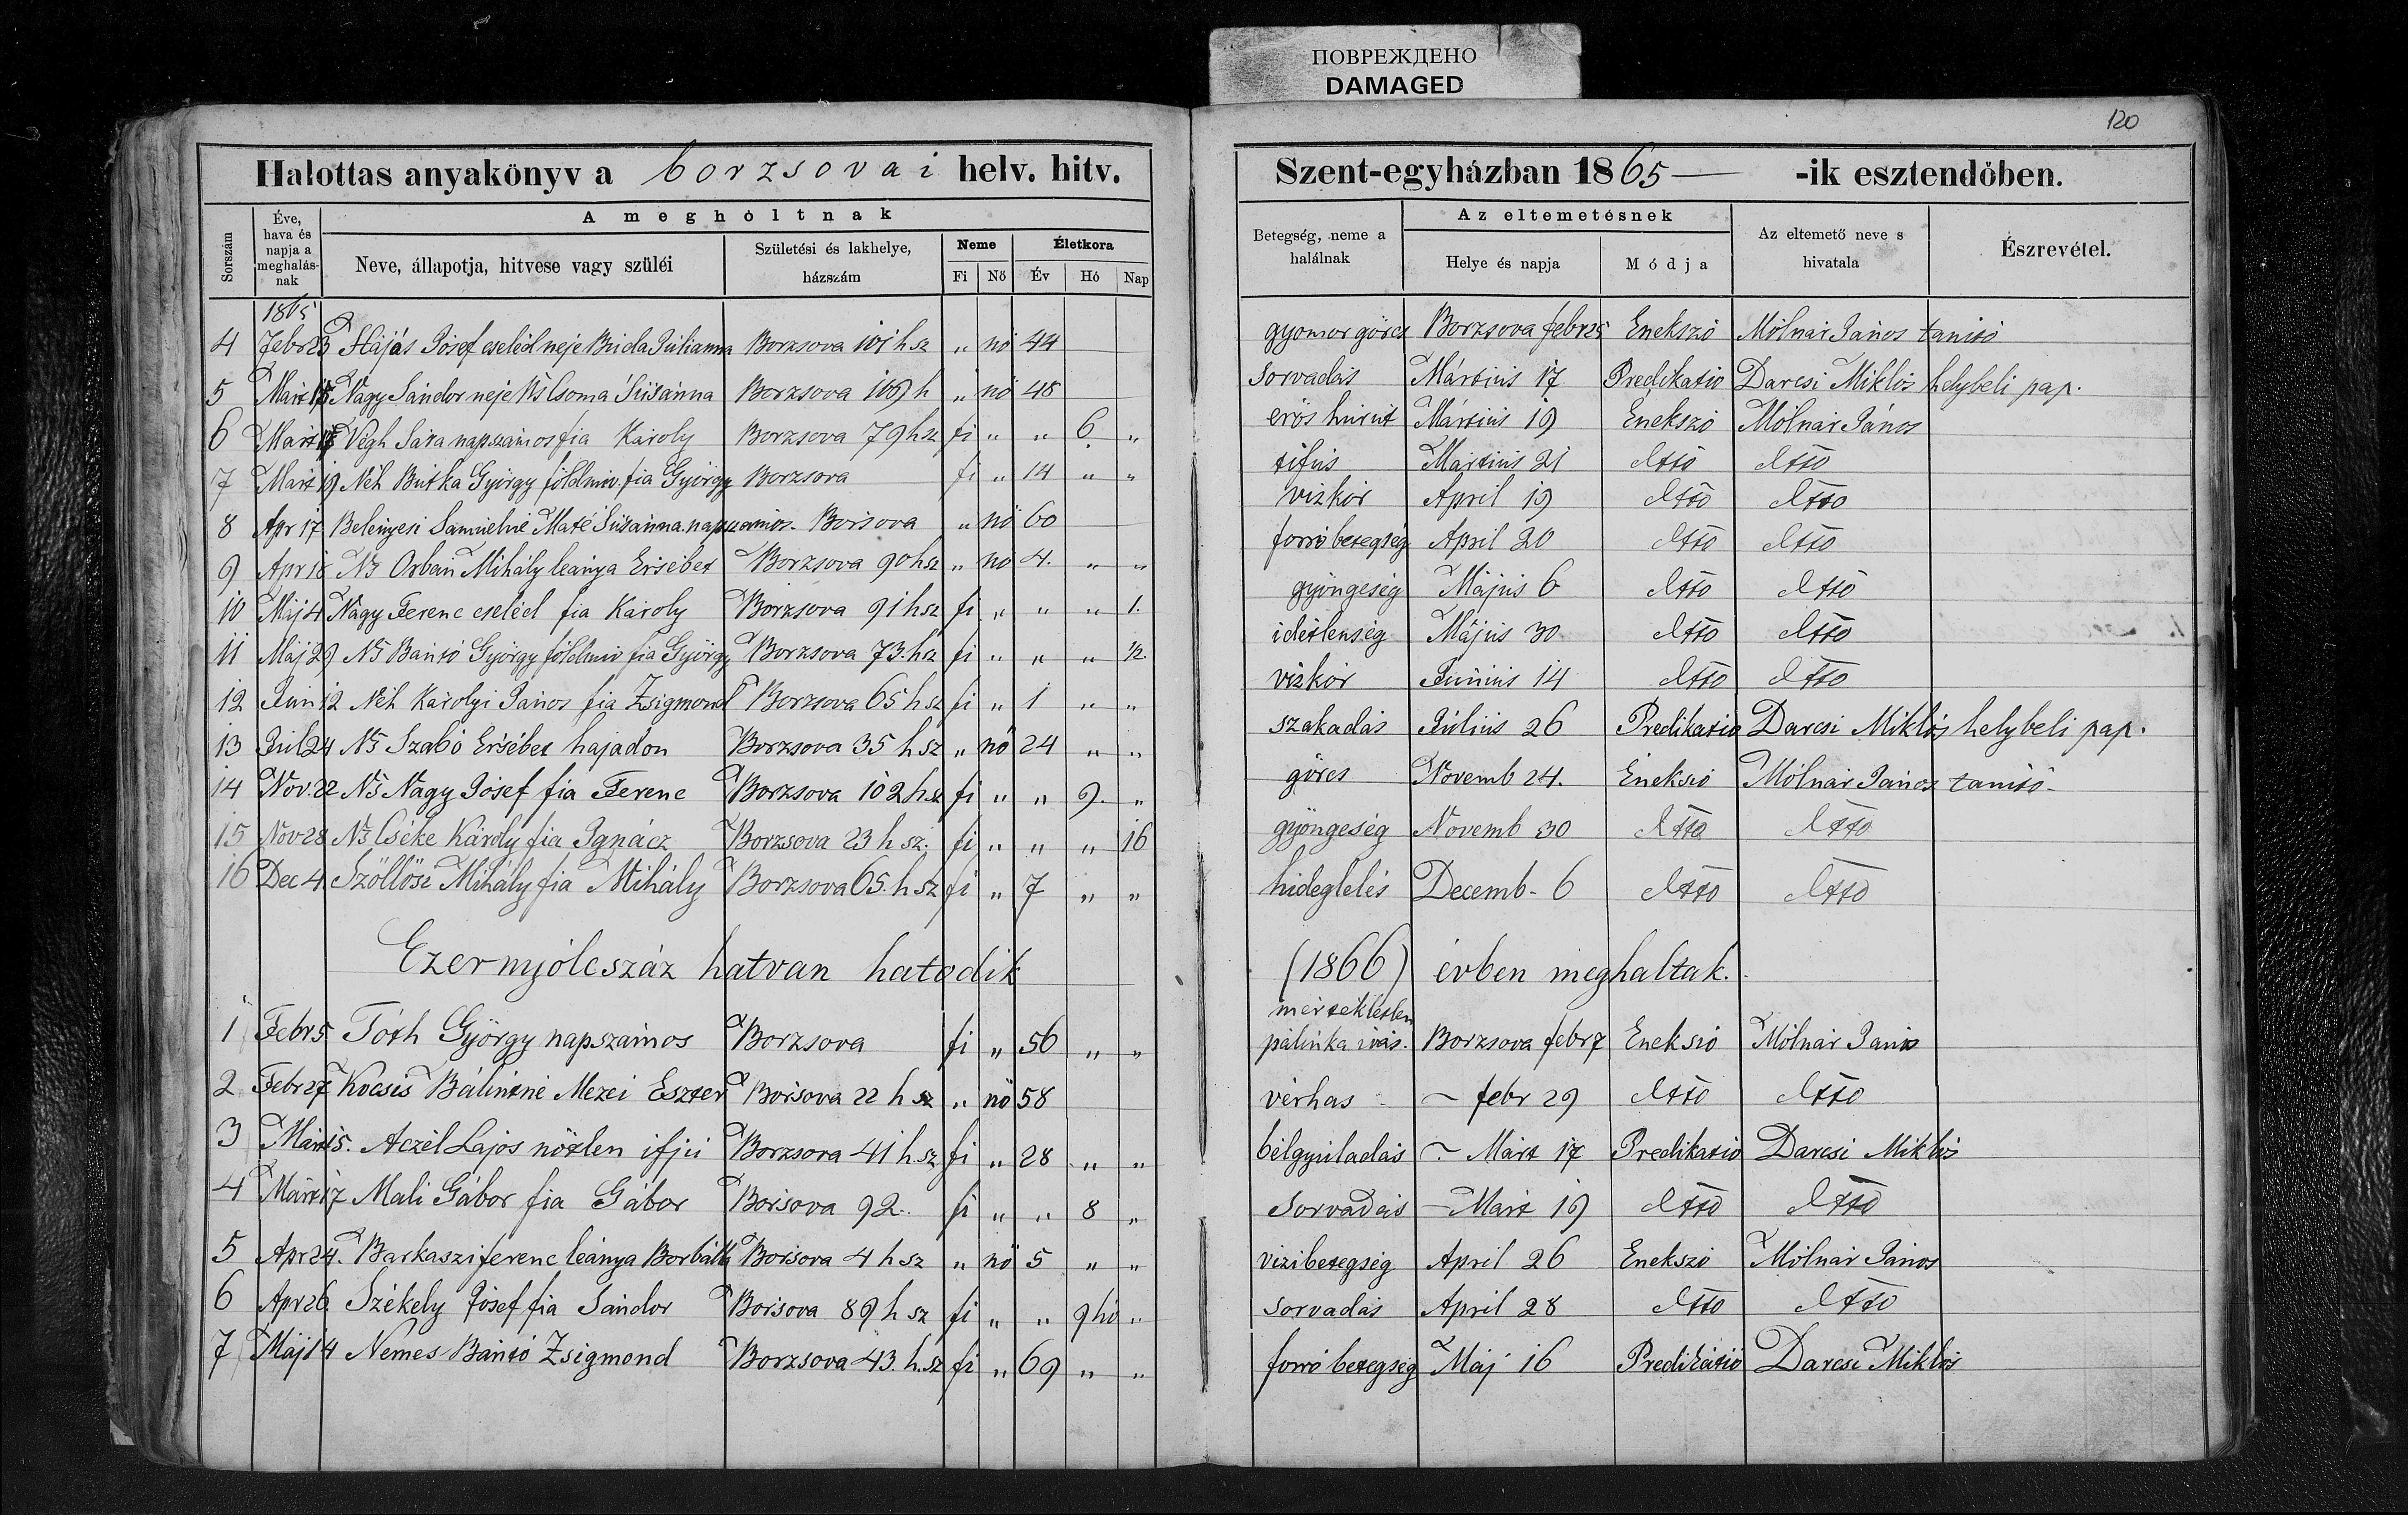 ПОВРЕЖДЕНО
DAMAGED
120
Halottas anyakönyv a borzsovai helv. hitv. Szent-egyházban 1865 -ik esztendőben.
Sorszám
Éve, hava és napja a meghalás-nak
A meghóltnak
Neve, állapotja, hitvese vagy szüléi
Születési és lakhelye, házszám
Neme
Fi Nő
Életkora
Év Hó Nap
Betegség, neme a halálnak
Az eltemetésnek
Helye és napja
Módja
Az eltemető neve s hivatala
Észrevétel.
1865
4 Febr 23 Hajás Jósef cseléd neje Buda Júlianna Borzsova 101 h sz „ nö 44 gyomor görcs Borzsova febr 25 Enekszó Mólnár János tanító
5 Márt Nagy Sándor neje Ns Csoma Súsánna Borzsova 109 h „ nö 48 sorvadás Mártius 17 Predikatio Darcsi Miklós helybeli pap.
6 Márt Végh Sára napszámos fia Károly Borzsova 79 h sz fi „ „ 6 „ erös hurut Mártius 19 Énekszó Mólnár János
7 Márt 19 Néh Butka György földmiv. fia György Borzsova fi „ 14 „ „ tifus Mártius 21 dtto dtto
8 Apr 17 Belényesi Samuelné Máté Súsánna napszamos. Borsova „ nö 60 vizkór April 19 dtto dtto
9 Apr 18 Ns Orbán Mihály leánya Ersébet Borzsova 90 h sz „ nö 4. „ „ forró betegség April 20 dtto dtto
10 Máj 4 Nagy Ferenc cseléd fia Károly Borzsova 91 h sz fi „ „ „ 1. gyöngeség Május 6 dtto dtto
11 Máj 29 Ns Bántó György földmiv fia György Borzsova 73. h sz fi „ „ „ 1/2. idétlenség Május 30 dtto dtto
12 Jun 12 Néh Károlyi János fia Zsigmond Borzsova 65 h sz fi „ 1 „ „ vizkór Június 14 dtto dtto
13 Jul 24 Ns Szabó Ersébet hajadon Borzsova 35 h sz „ nö 24 „ „ szakadás Július 26 Predikatio Darcsi Miklós helybeli pap.
14 Nov. 22 Ns Nagy Jósef fia Ferenc Borzsova 102 h sz fi „ „ 9. „ görcs Novemb 24. Éneksió Mólnár János tanító
15 Nov 28 Ns Cséke Károly fia Ignácz Borzsova 23 h sz. fi „ „ „ 16 gyöngeség Novemb 30 dtto dtto
16 Dec 4. Szöllösi Mihály fia Mihály Borzsova 65. h sz fi „ 7 „ „ hideglelés Decemb. 6 dtto dtto
Ezernyólcszáz hatvan hatodik (1866) évben meghaltak.
1 Febr 5 Tóth György napszámos Borzsova fi „ 56 „ „ mértékletlen pálinka ivás. Borzsova febr 7 Eneksió Mólnár János
2 Febr 27 Kocsis Bálintné Mezei Eszter Borsova 22 h sz „ nö 58 vérhas – febr 29 dtto dtto
3 Márt 15. Aczél Lajos nötlen ifjú Borzsova 41 h. sz fi „ 28 „ „ bélgyúladás – Márt 17 Predikatio Darcsi Miklós
4 Márt 17 Mali Gábor fia Gábor Borsova 92. fi „ „ 8 „ Sorvadás – Márt 19 dtto dtto
5 Apr 24. Barkaszi ferenc leánya Borbála Borsova 4 h sz „ nö 5 „ „ vizibetegség April 26 Enekszó Mólnár János
6 Apr 26 Székely Jósef fia Sándor Borsova 89 h sz fi „ „ 9 hó „ sorvadás April 28 dtto dtto
7 Máj 14 Nemes Bántó Zsigmond Borzsova 43. h. sz fi „ 69 „ „ forró betegség Máj 16 Predikátió Darcsi Miklós